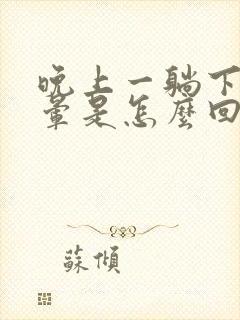 晚上一躺下
暈是怎麼回
蘇傾